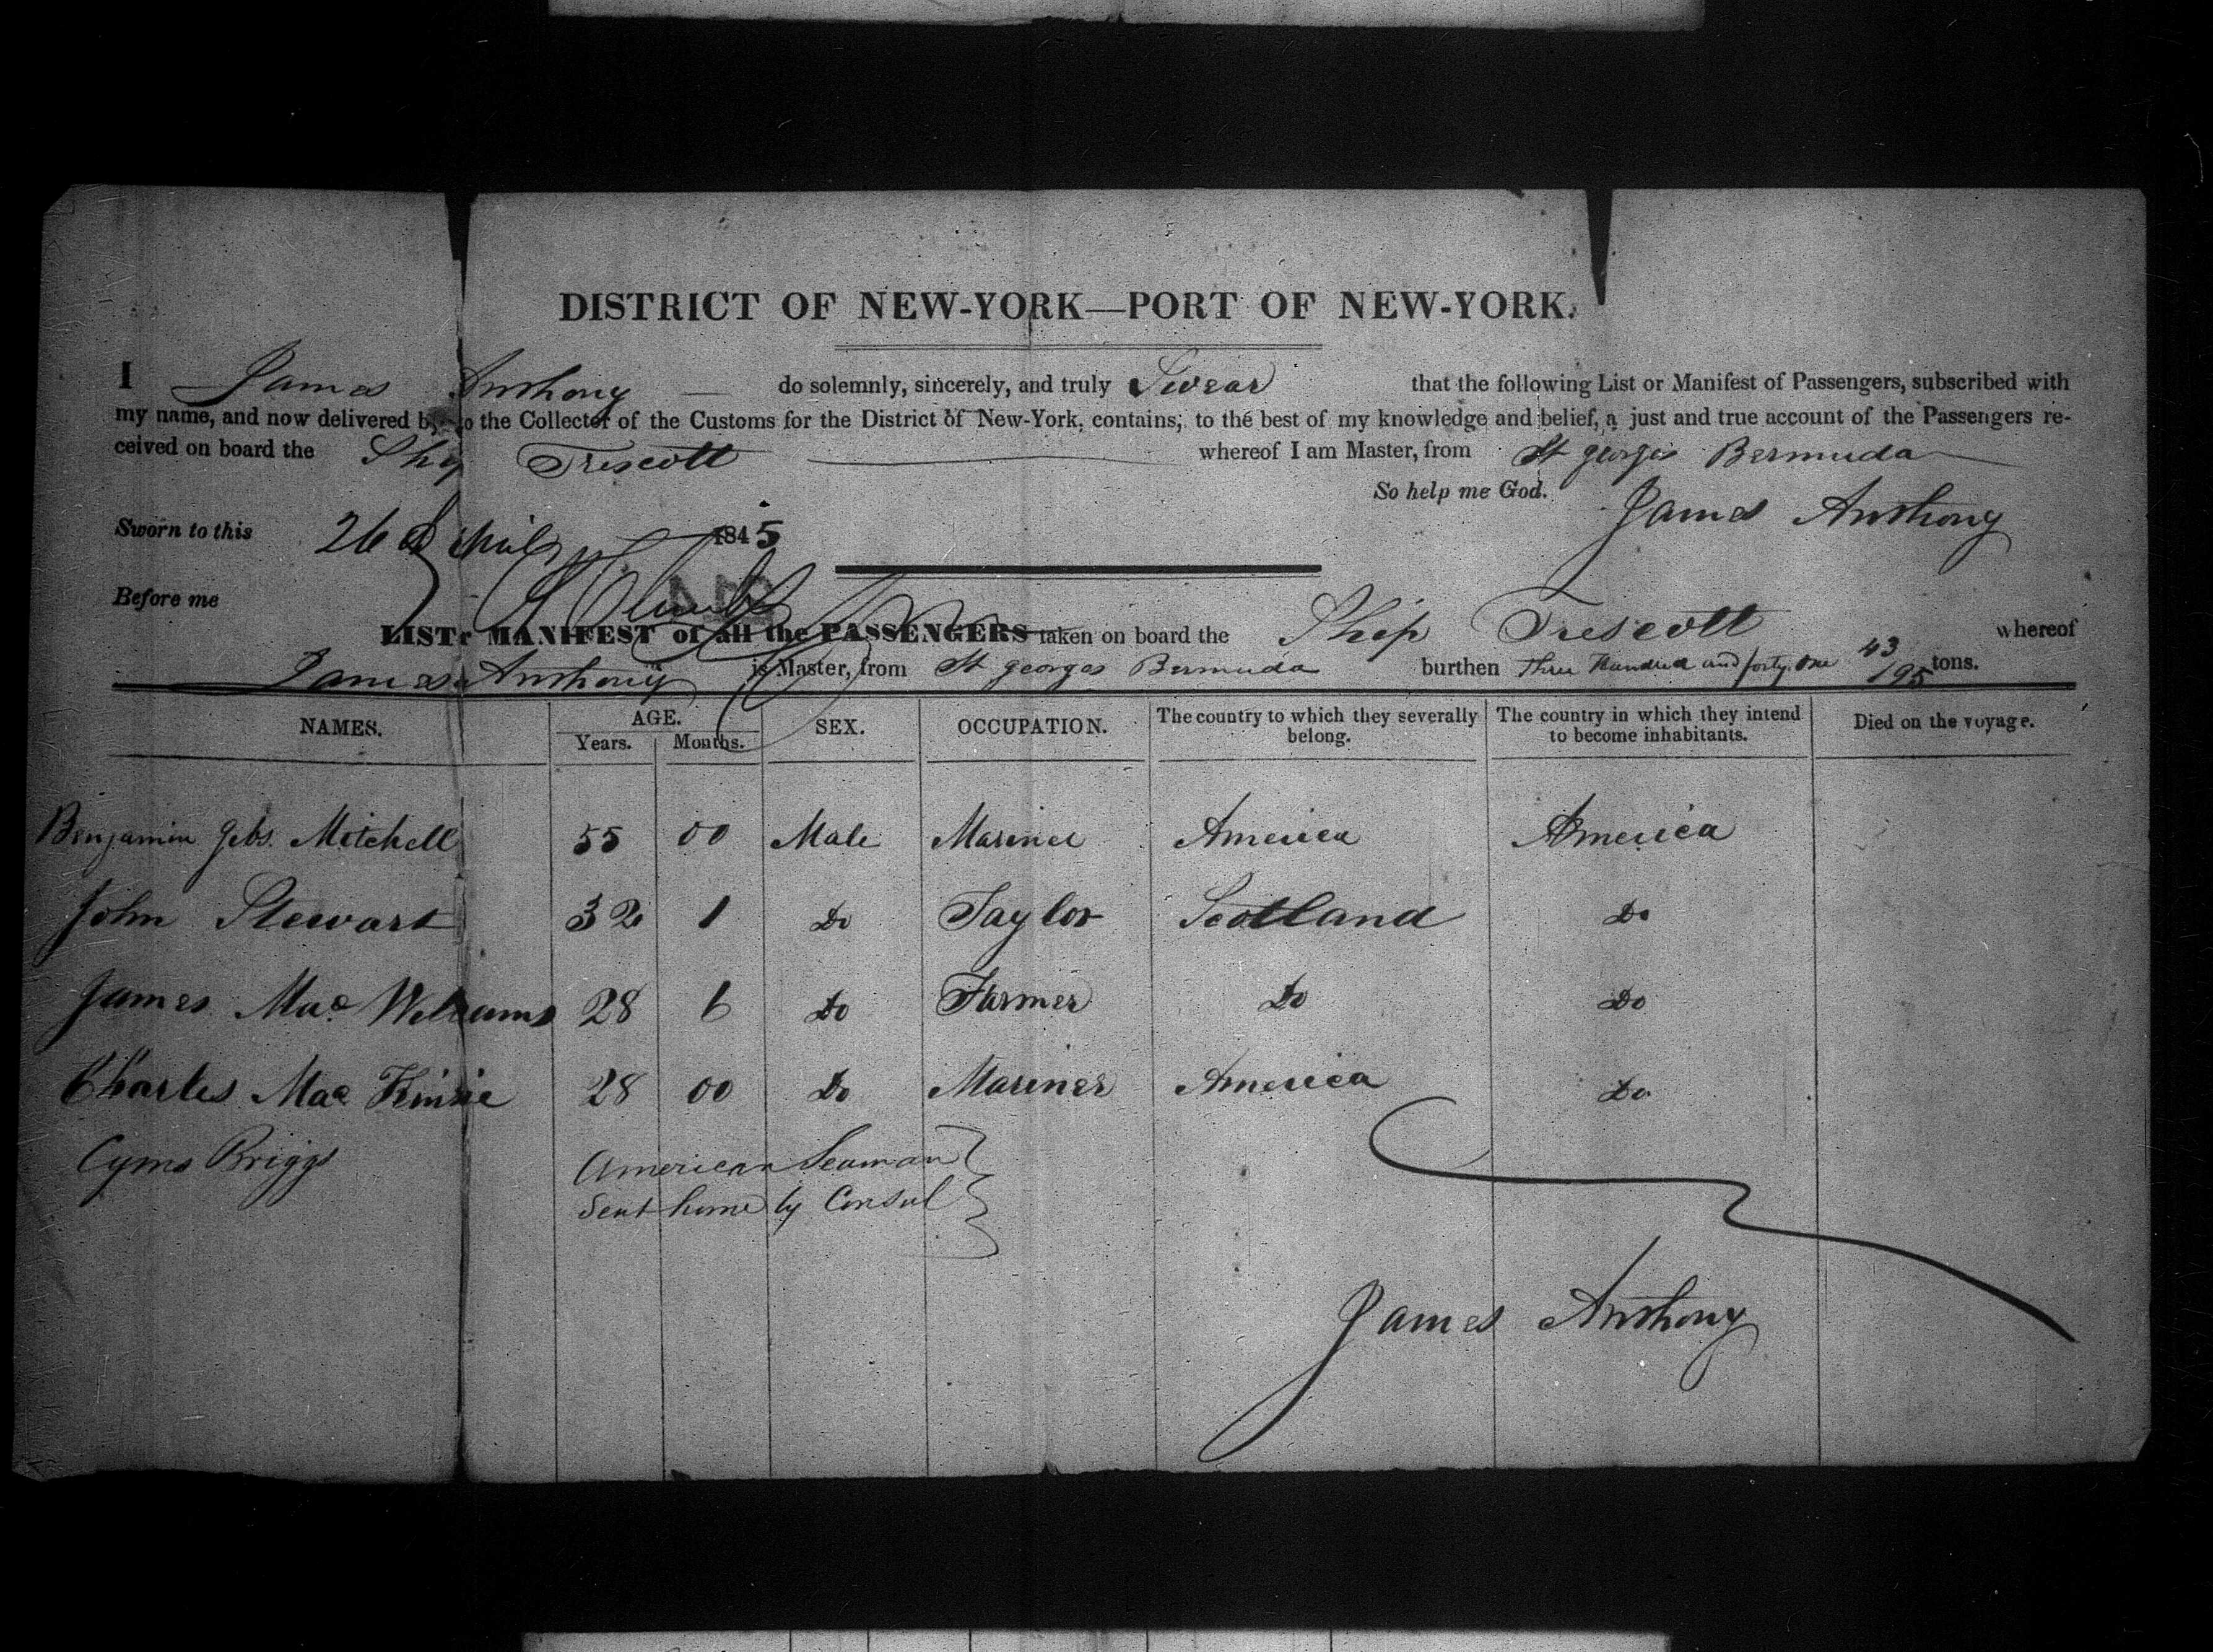 DISTRICT OF NEW-YORK—PORT OF NEW-YORK.
I James Anthony — do solemnly, sincerely, and truly Swear that the following List or Manifest of Passengers, subscribed with
my name, and now delivered by to the Collector of the Customs for the District of New-York, contains, to the best of my knowledge and belief, a just and true account of the Passengers re-
ceived on board the Ship Trescott whereof I am Master, from St Georges Bermuda
So help me God.
James Anthony
Sworn to this 26 April 1845
Before me
LIST or MANIFEST of all the PASSENGERS taken on board the Ship Trescott whereof
James Anthony is Master, from St Georges Bermuda burthen Three Hundred and forty one 43/95 tons.
NAMES. AGE. SEX. OCCUPATION. The country to which they severally belong. The country in which they intend to become inhabitants. Died on the voyage.
Years. Months.
Benjamin Mitchell 55 00 Male Mariner America America
John Stewart 32 1 Do Taylor Scotland Do
James Mac Williams 28 6 Do Farmer Do Do
Charles Mac Kinzie 28 00 Do Mariner America Do
Cyrus Briggs American Seaman
Sent home by Consul
James Anthony